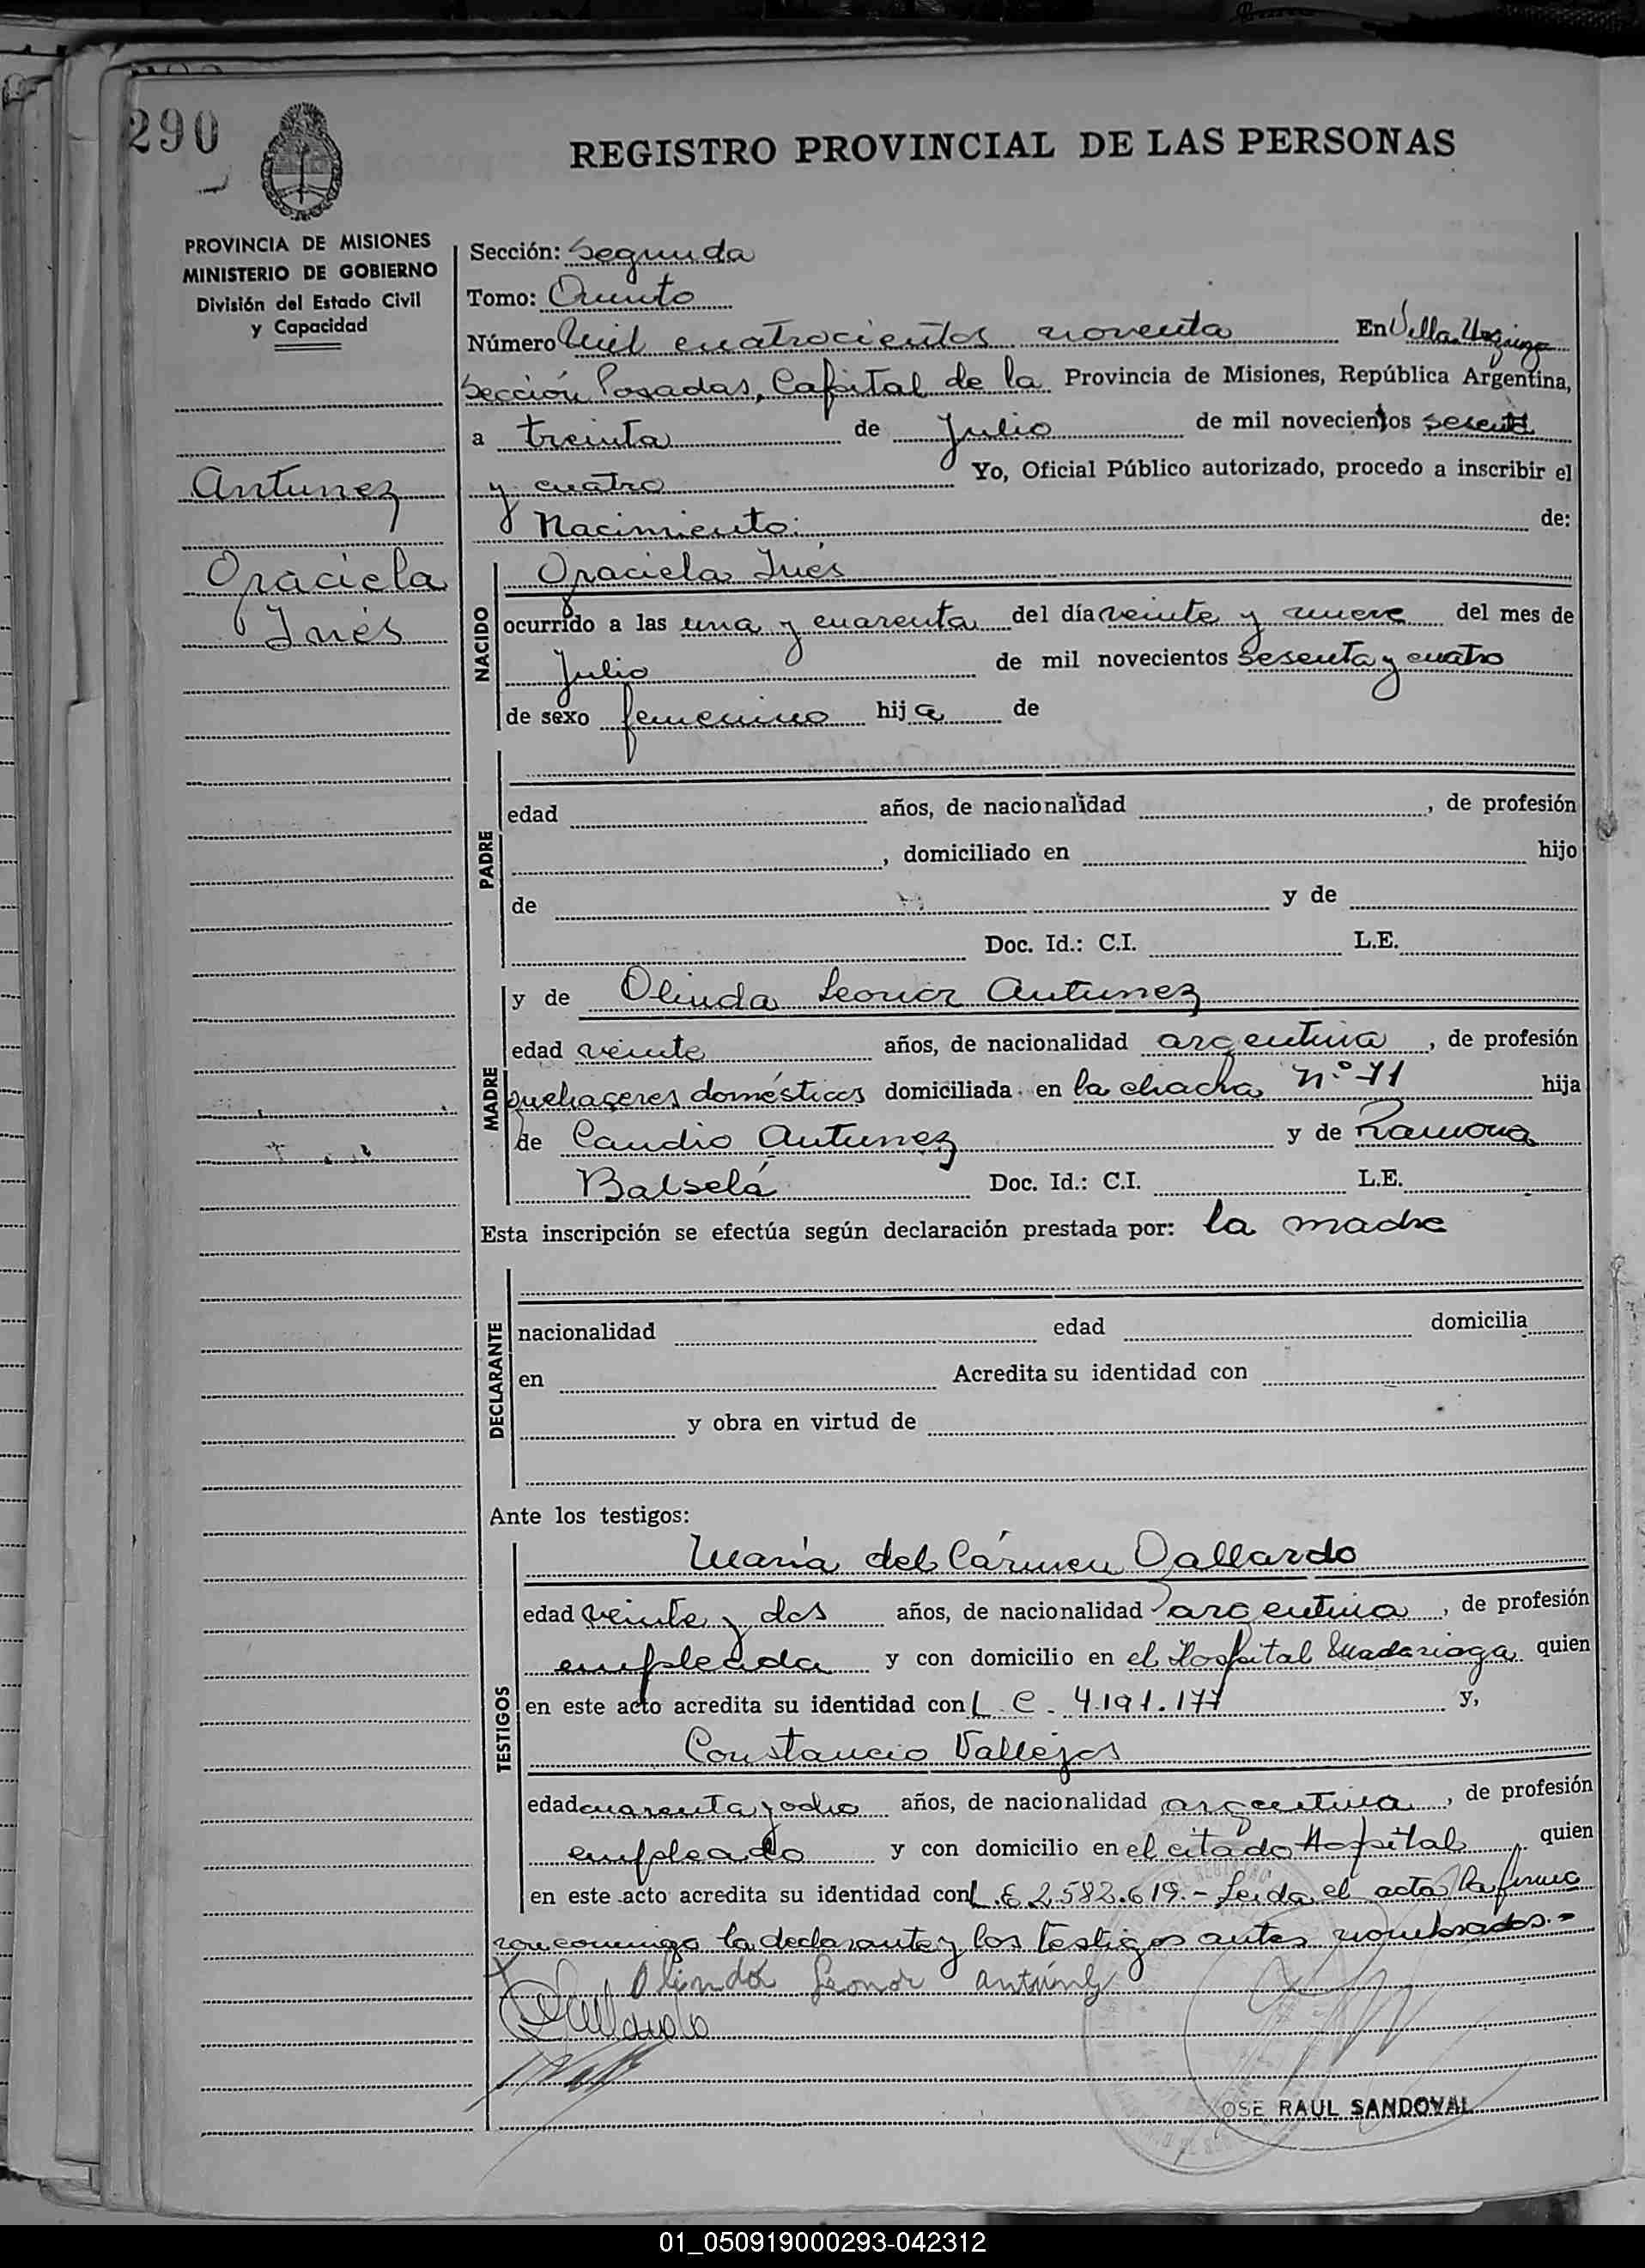 290
REGISTRO PROVINCIAL DE LAS PERSONAS
PROVINCIA DE MISIONES
MINISTERIO DE GOBIERNO
División del Estado Civil
y Capacidad
Antunez
Graciela
Inés
Sección: Segunda
Tomo: Quinto
Número Mil cuatrocientos noventa En Villa Urquiza
Sección Posadas, Capital de la Provincia de Misiones, República Argentina,
a treinta de Julio de mil novecientos sesenta
y cuatro Yo, Oficial Público autorizado, procedo a inscribir el
Nacimiento: de:
NACIDO
Graciela Inés
ocurrido a las una y cuarenta del día veinte y nueve del mes de
Julio de mil novecientos sesenta y cuatro
de sexo femenino hija de
PADRE
edad años, de nacionalidad , de profesión
, domiciliado en hijo
de y de
Doc. Id.: C.I. L.E.
MADRE
y de Olinda Leonor Antunez
edad veinte años, de nacionalidad argentina , de profesión
quehaceres domésticos domiciliada en la chacra Nº 71 hija
de Caudio Antunez y de Ramona
Balselá Doc. Id.: C.I. L.E.
Esta inscripción se efectúa según declaración prestada por: la madre
DECLARANTE
nacionalidad edad domicilia
en Acredita su identidad con
y obra en virtud de
Ante los testigos:
TESTIGOS
María del Cármen Gallardo
edad veinte y dos años, de nacionalidad argentina , de profesión
empleada y con domicilio en el Hospital Madariaga quien
en este acto acredita su identidad con L. C. 4.191.177 y,
Constancio Vallejos
edad cuarenta y ocho años, de nacionalidad argentina , de profesión
empleado y con domicilio en el citado Hospital quien
en este acto acredita su identidad con L.E 2.582.619.- Leida el acta la firma
con comigo la declarante y los testigos antes nombrados.-
Olinda Leonor Antúnez
OSE RAUL SANDOVAL
01_050919000293-042312